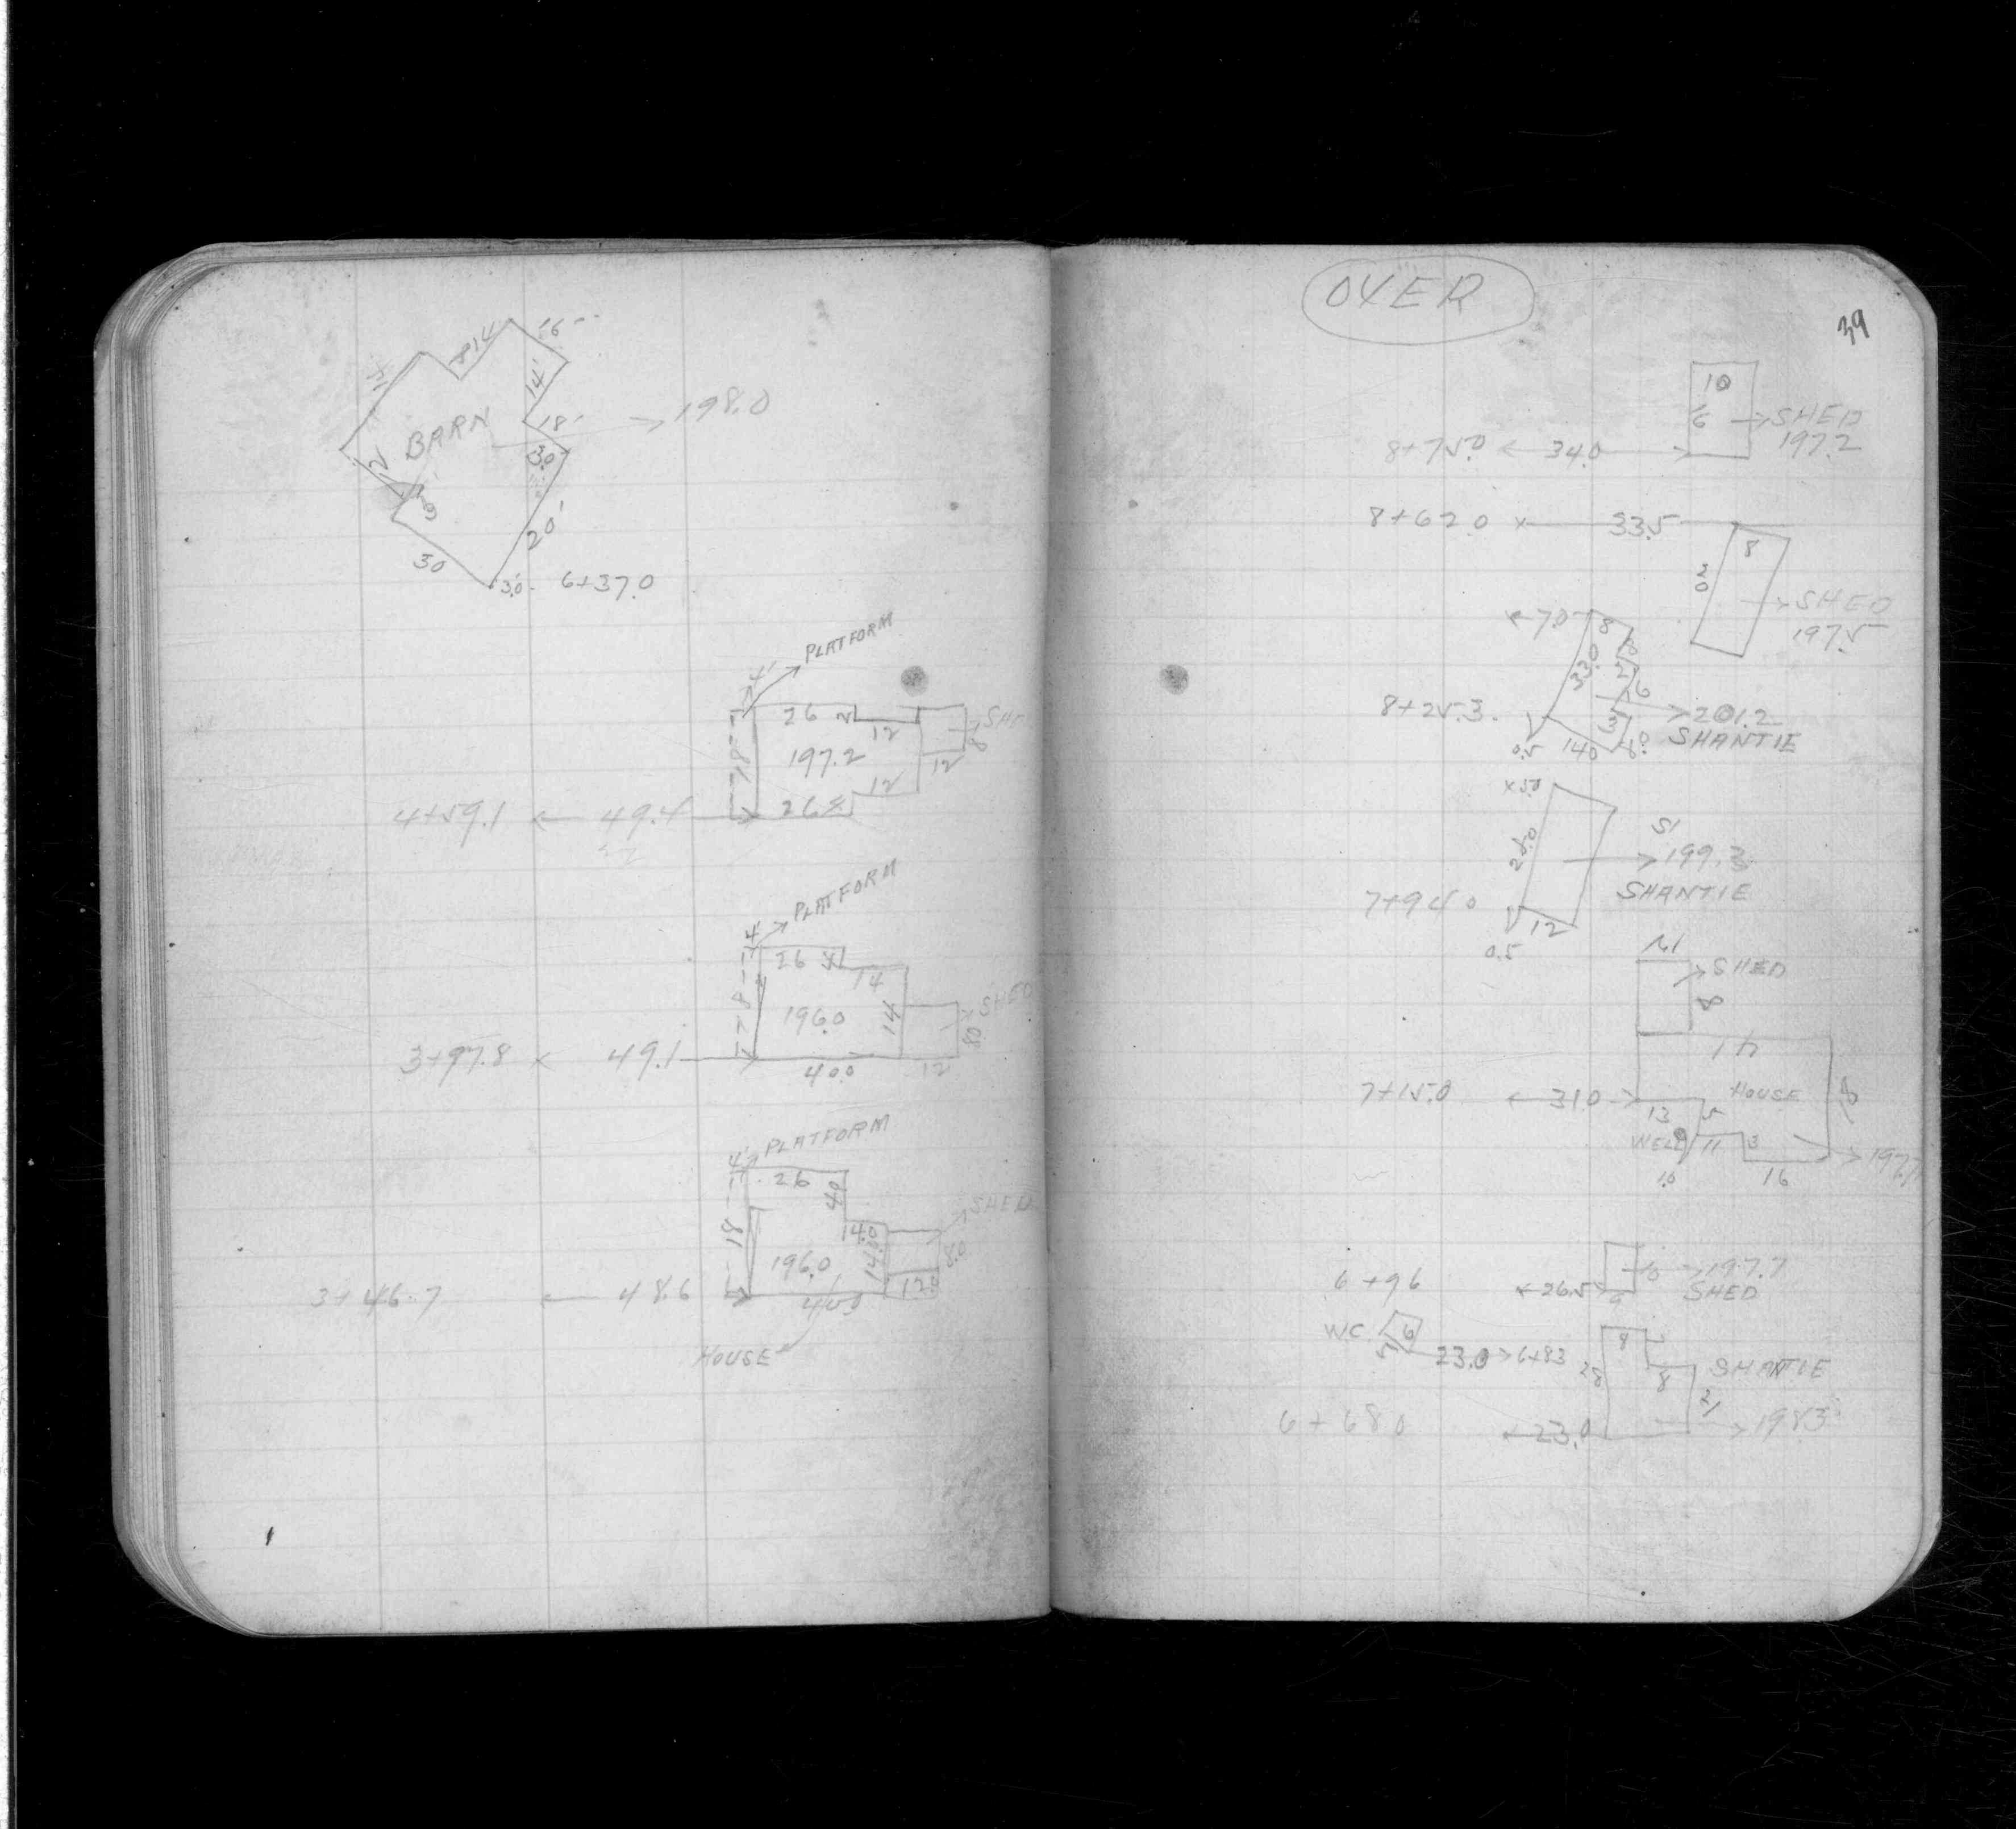 16'
814
14'
BARN
198.0
18'
30
20'
30
3.0 6+37.0
PLATFORM
4'
26 2
12
SHE
18
197.2
8
12
12
4+59.1 49.4
26 2
PLATFORM
4'
26 4
14
SHED
196.0
14
8.0
3+97.8 49.1
40.0
12
4' PLATFORM
26
4.0
SHED
18
14.0
14.0
8.0
196.0
12.0
3+46.7 48.6
40.0
HOUSE
OVER
39
10
6
SHED
197.2
8+75.0 34.0
8+62.0 33.5
8
20
SHED
197.5
7.0
8
33.0
2
6
8+25.3
201.2
SHANTIE
3
0.5
14.0
8.0
x5.0
25.0
199.3
SHANTIE
7+94.0
12
0.5
SHED
8
41
HOUSE
18
7+15.0 31.0
13
5
WELL
11
3
1.0
16
197.7
6+96
26.5
6
197.7
SHED
WC
6
5
23.0 6+83
9
28
8
SHANTIE
21
6+68.0 23.0
198.3